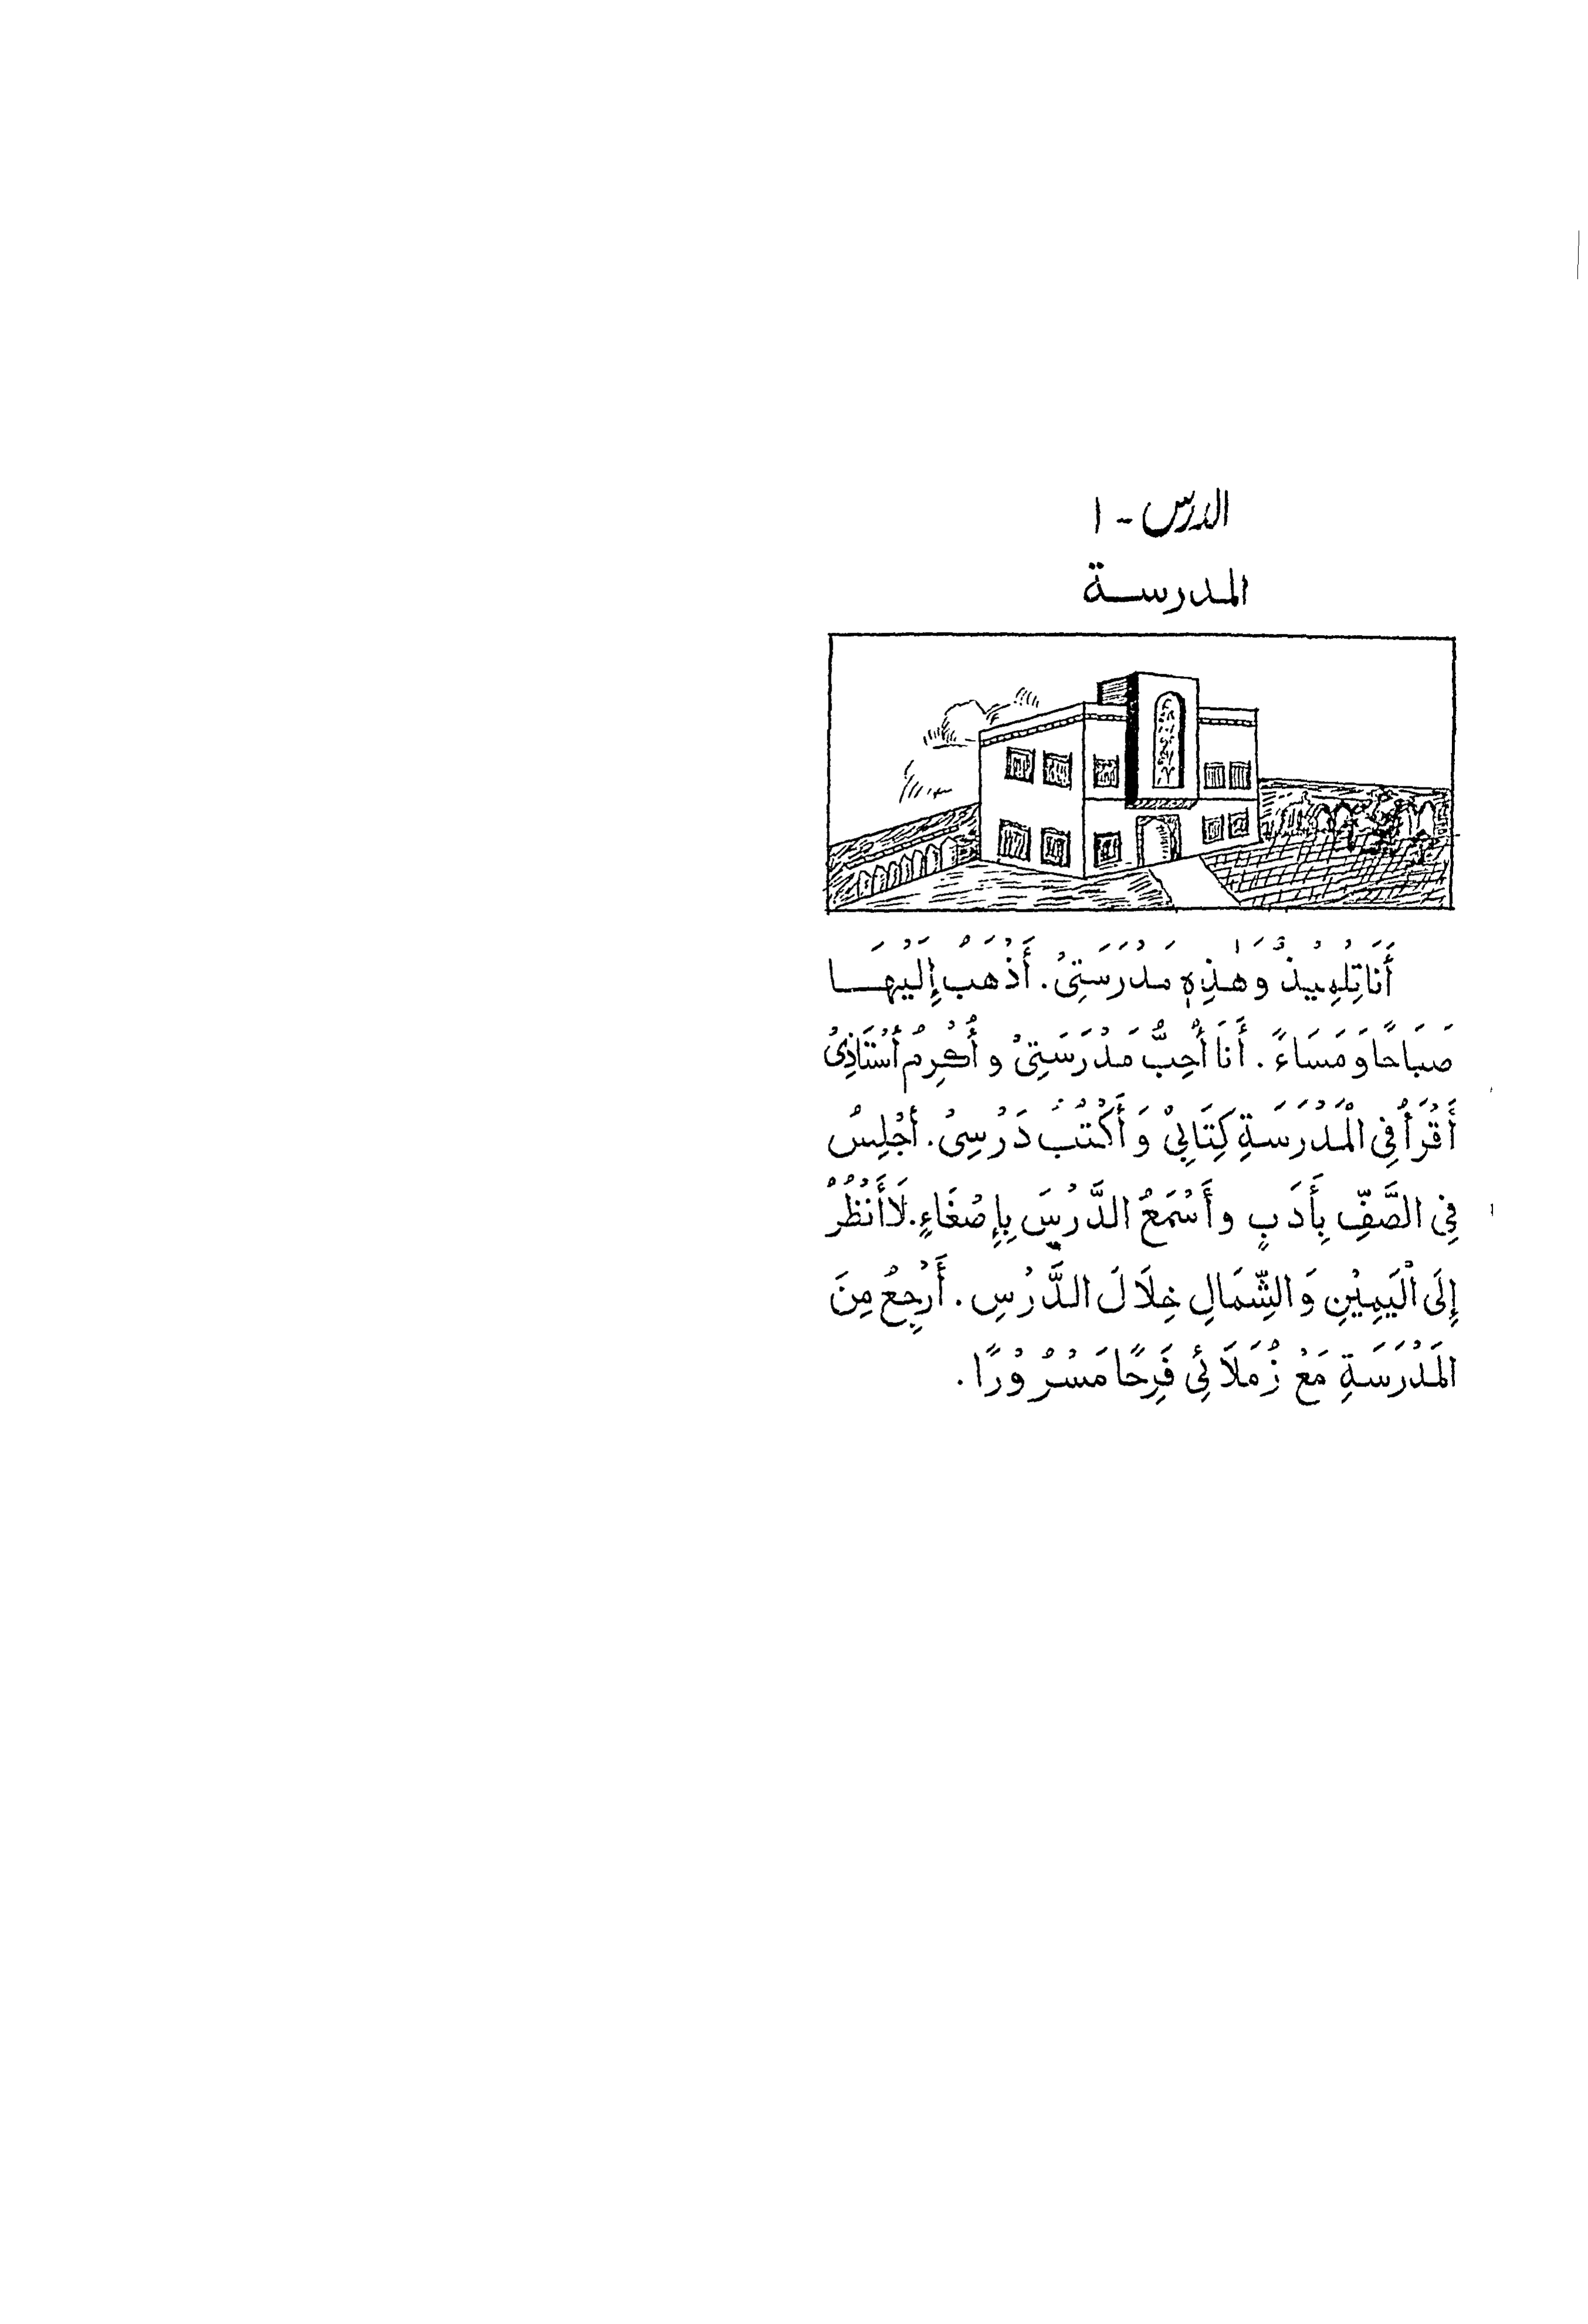 الدرس - ١
المدرسة
أَنَا تِلْمِيذٌ وَهٰذِهٖ مَدْرَسَتِيْ. أَذْهَبُ إِلَيْهَا
صَبَاحًا وَمَسَاءً. أَنَا أُحِبُّ مَدْرَسَتِيْ وأُكْرِمُ أُسْتَاذِيْ
أَقْرَأُ فِي الْمَدْرَسَةِ كِتَابِيْ وَأَكْتُبُ دَرْسِيْ. أَجْلِسُ
فِي الصَّفِّ بِأَدَبٍ وأَسْمَعُ الدَّرْسَ بِإِصْغَاءٍ. لَاأَنْظُرُ
إِلَى الْيَمِيْنِ وَالشِّمَالِ خِلَالَ الدَّرْسِ. أَرْجِعُ مِنَ
الْمَدْرَسَةِ مَعْ زُمَلَائِيْ فَرِحًا مَسْرُوْرًا.